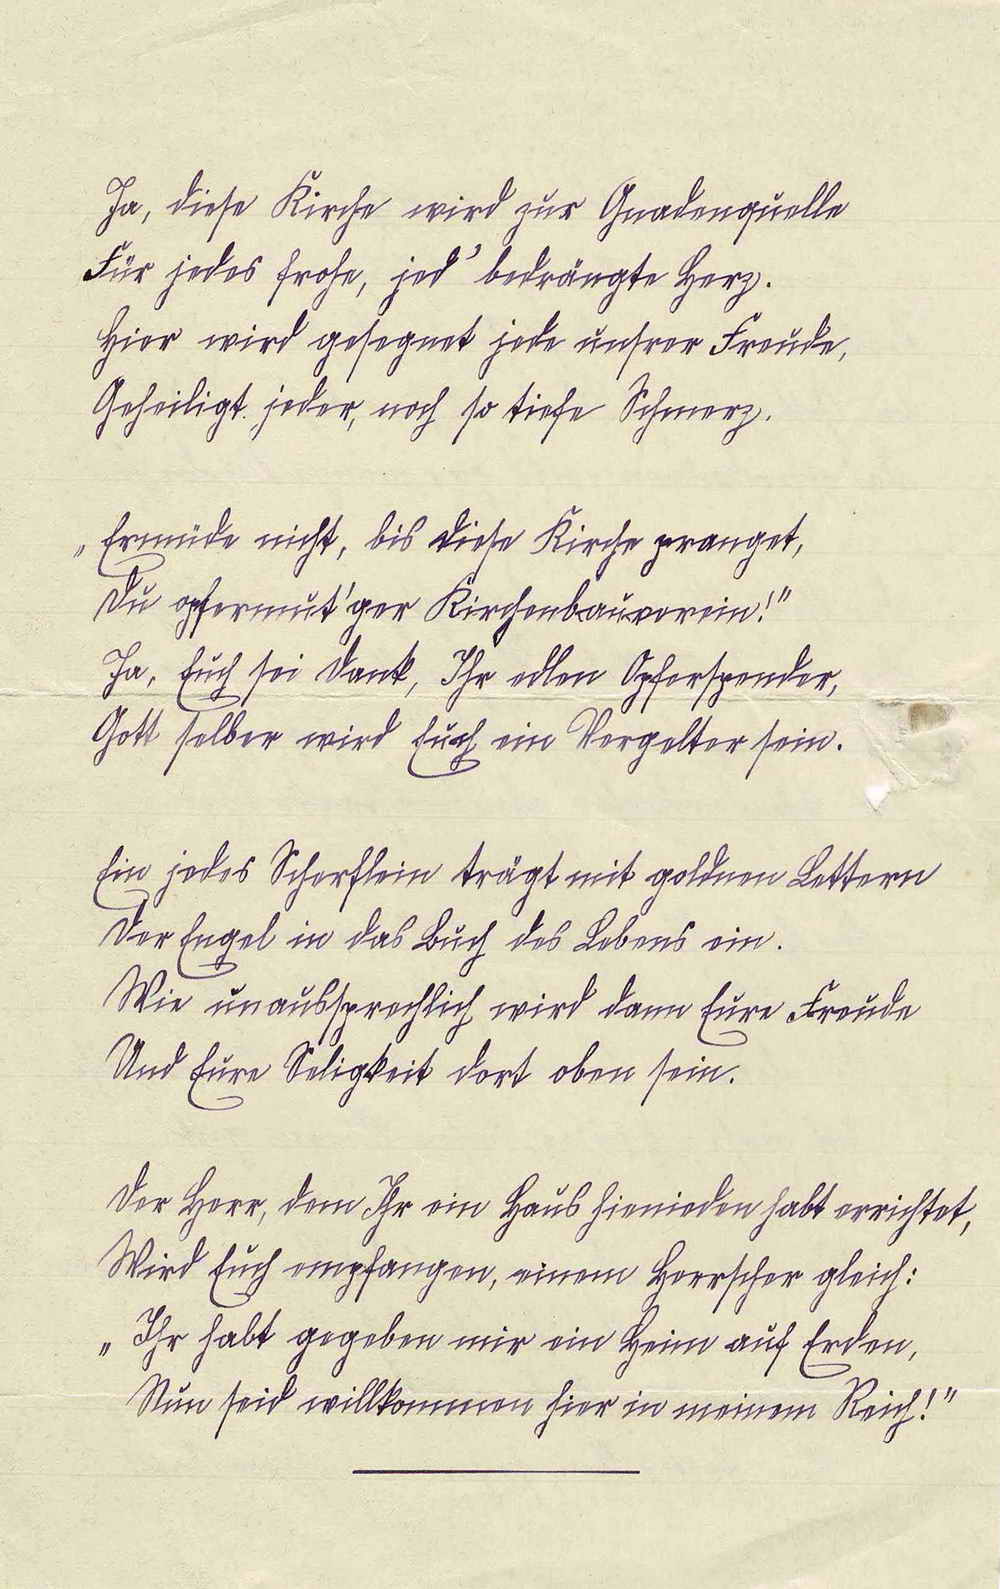 Ja, diese Kirche wird zur Gnadenquelle
Für jedes frohe, jed' bedrängte Herz.
Hier wird gesegnet jede unsrer Freude,
Geheiligt jeder, noch so tiefe Schmerz.
„Ermüde nicht, bis diese Kirche pranget,
Du opfermut'ger Kirchenbauverein!"
Ja, Euch sei Dank, Ihr edlen Opferspender,
Gott selber wird Euch ein Vergelter sein.
Ein jedes Scherflein trägt mit goldnen Lettern
Der Engel in das Buch des Lebens ein.
Wie unaussprechlich wird dann Eure Freude
Und Eure Seligkeit dort oben sein.
Der Herr, dem Ihr ein Haus hienieden habt errichtet,
Wird Euch empfangen, einem Herrscher gleich:
„Ihr habt gegeben mir ein Heim auf Erden,
Nun seid willkommen hier in meinem Reich!"